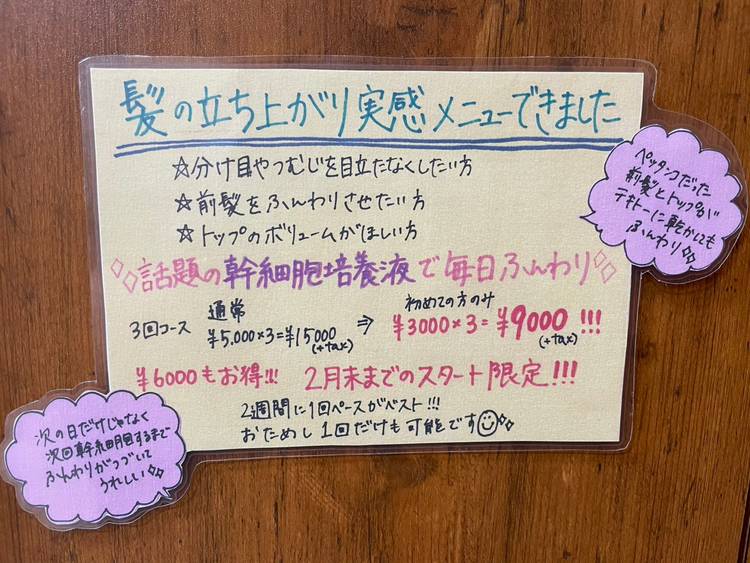 髪の立ち上がり実感メニューできました
☆分け目やつむじを目立たなくしたい方
☆前髪をふんわりさせたい方
☆トップのボリュームがほしい方
話題の幹細胞培養液で毎日ふんわり
通常
初めての方のみ
3回コース ¥5,000×3=¥15000 (+tax) ⇒ ¥3000×3=¥9000!!! (+tax)
¥6000もお得!!! 2月末までのスタート限定!!!
2週間に1回ペースがベスト!!!
おためし1回だけも可能です
ペッタンコだった
前髪とトップが
テキトーに乾かしても
ふんわり
次の日だけじゃなく
次回幹細胞するまで
ふんわりがつづいて
うれしい